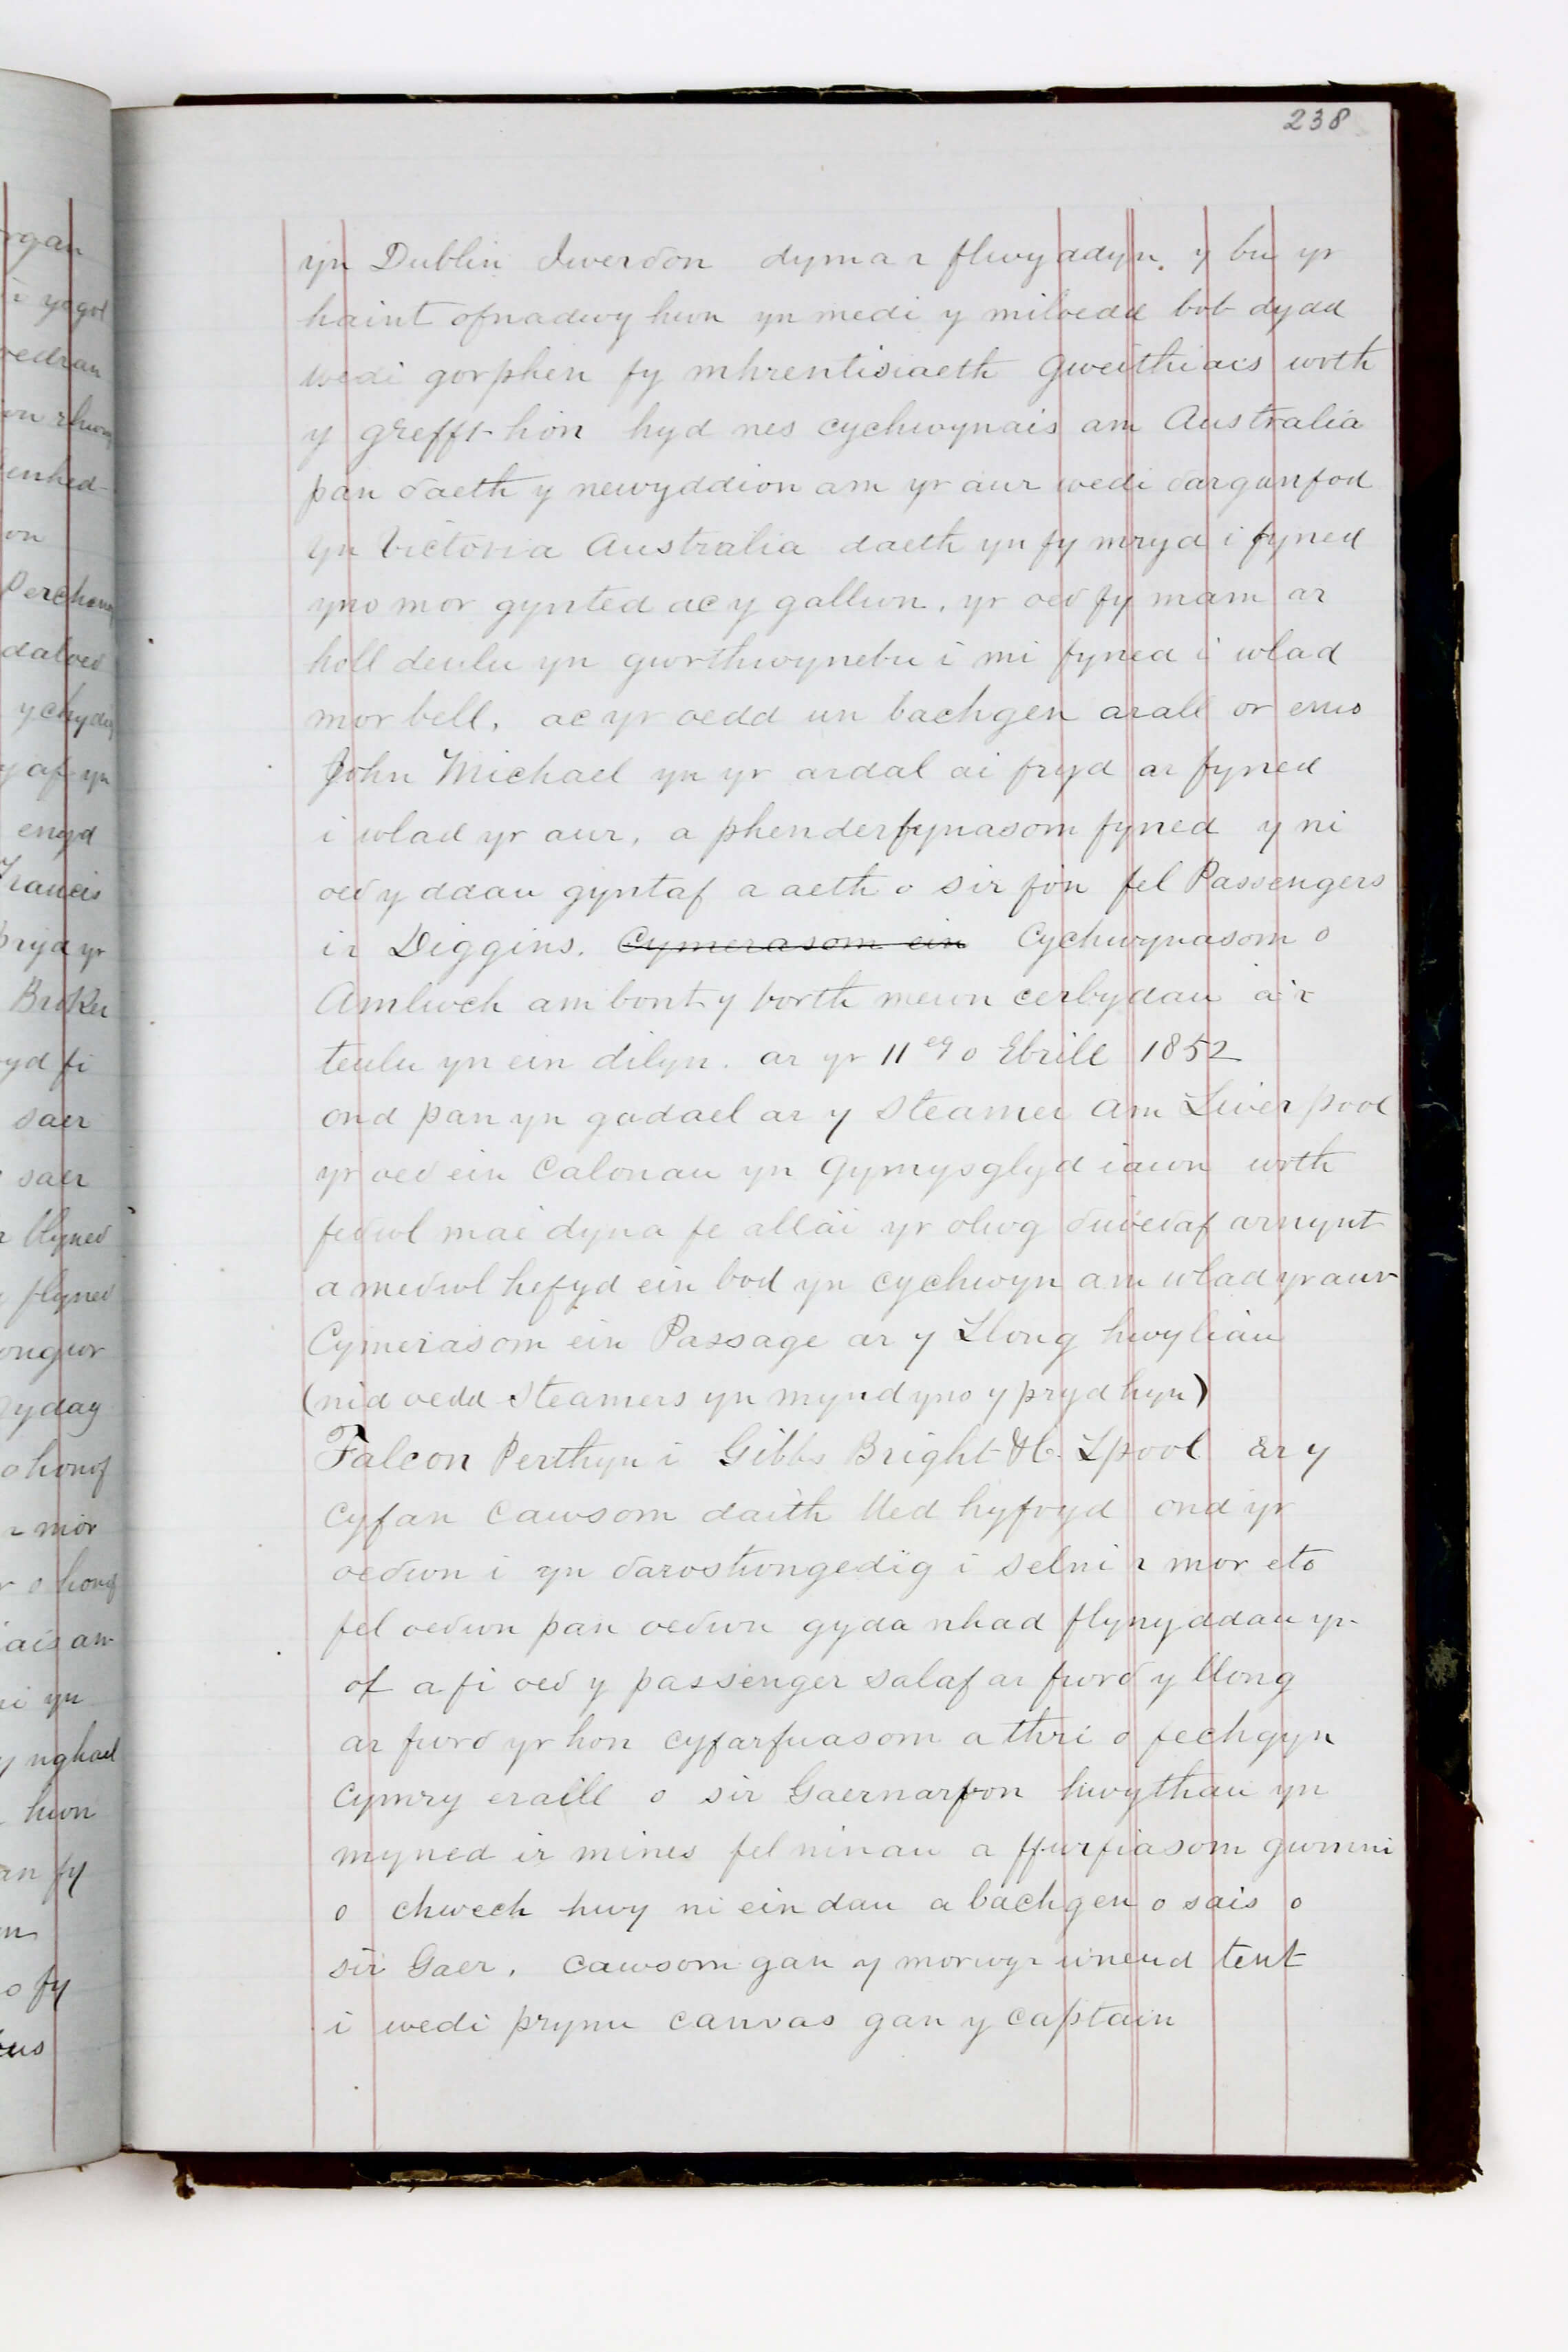 238
yn Dublin Iwerδon dyma r flwyddyn. y bu yr
haint ofnadwy hwn yn medi y miloedd bob dydd
wedi gorphen fy mhrentisiaeth Gweithiais wrth
y grefft hon hyd nes cychwynais am Australia
pan δaeth y newyddion am yr aur wedi δarganfod
yn Victoria Australia daeth yn fy mryd i fyned
yno mor gynted ac y gallwn. yr oeδ fy mam ar
holl deulu yn gwrthwynebu i mi fyned i wlad
mor bell, ac yr oedd un bachgen arall or enw
John Michael yn yr ardal ai fryd ar fyned
i wlad yr aur, a phenderfynasom fyned y ni
oeδ y ddau gyntaf a aeth o sir fon fel Passengers
ir Diggins. Cymerasom ein Cychwynasom o
Amlwch am bont y borth mewn cerbydau a'r
teulu yn ein dilyn. ar yr 11eg o Ebrill 1852
ond pan yn gadael ar y Steamer am Liverpool
yr oeδ ein Calonau yn Gymysglyd iawn wrth
feδwl mae dyna fe allai yr olwg δiweδaf arnynt
a meδwl hefyd ein bod yn cychwyn am wlad yr aur
Cymerasom ein Passage ar y Llong hwyliau
(nid oedd Steamers yn mynd yno y pryd hyn)
Falcon Perthyn i Gibbs Bright &Co. Lpool ar y
cyfan cawsom daith lled hyfryd ond yr
oeδwn i yn δarostwngedig i selni r mor eto
fel oeδwn pan oeδwn gyda nhad flynyddau yn
ol a fi oeδ y passenger salaf ar fwrδ y llong
ar fwrδ yr hon cyfarfuasom a thri o fechgyn
Cymry eraill o sir Gaernarfon hwythau yn
myned ir mines fel ninau a ffurfiasom gwmni
o chwech hwy ni ein dau a bachgen o sais o
sir Gaer. Cawsom gan y morwyr wneud tent
i wedi prynu canvas gan y captain